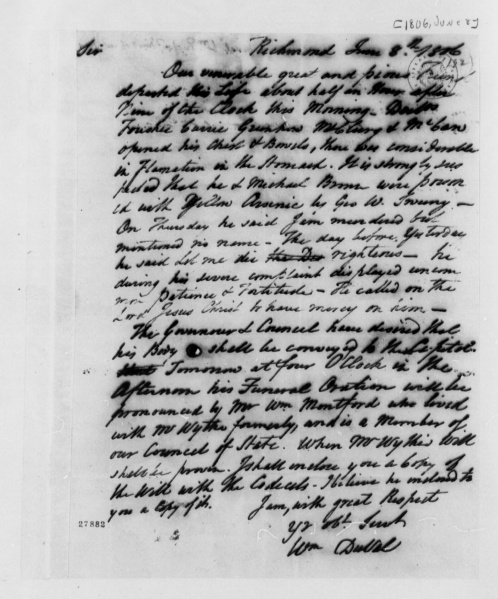 [1806, JUNE 8]
Sir Richmond June 8th 1806
Our venerable great and pious Friend
departed this Life about half an Hour after
Nine of the Clock this Morning Doctors
Foushee Currie Greenhow McClurg & McCaw
opened his Chest & Bowels, there was considerable
in Flamation in the Stomach. It is strongly sus
pected that he & Michael Brown were poison
ed with Yellow Arsenic by Geo W. Sweney —
On Thursday he said I am murdered but
mentioned no name — The day before Yesterday
he said let me die righteous — he
during his severe complaint displayed uncom
mon Patience & Fortitude — He called on the
Lord Jesus Christ to have mercy on him —
The Governour & Council have desired that
his Body shall be conveyed to the Capitol
Tomorrow at four O'Clock in The
Afternoon his Funeral Oration will be
pronounced by Mr Wm Montford who lived
with Mr Wythe formerly, and is a Member of
our Council of State. When Mr Wythe's Will
shall be proven. I shall enclose you a Copy of
the Will with the Codecels. I believe he inclosed to
you a Copy of it. I am, with great Respect
Yr Obt Servt
Wm DuVal
27882